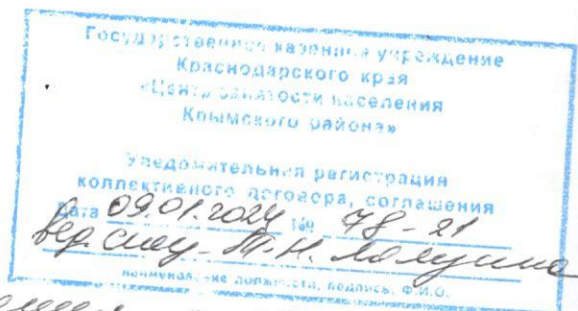 Государственное казенное учреждение
Краснодарского края
«Центр занятости населения
Крымского района»
Уведомительная регистрация
коллективного договора, соглашения
Дата 09.01.2024 № 78-21
вед. спец. Т.Н.
наименование должности, подпись, Ф.И.О.